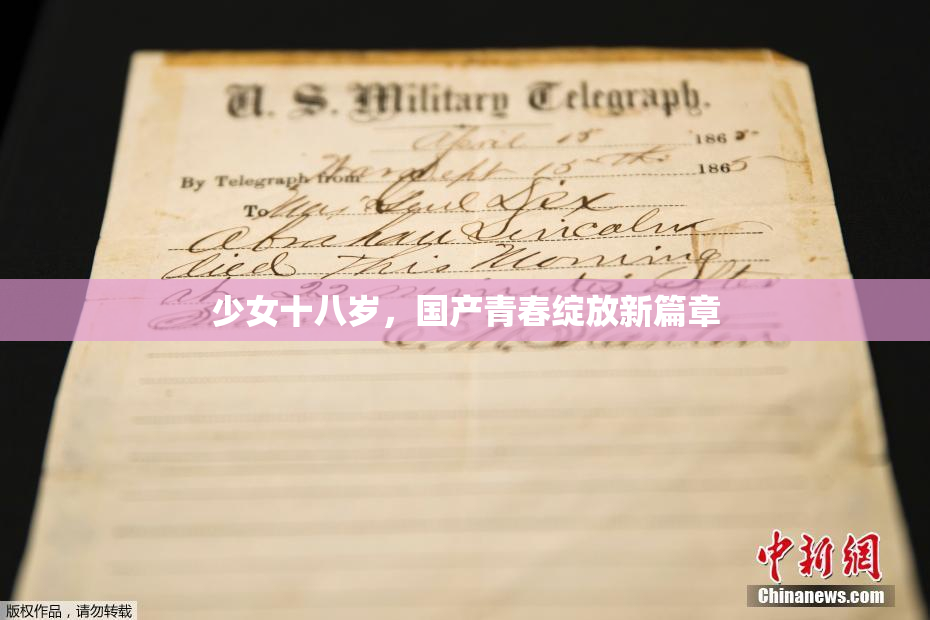 U. S. Military Telegraph.
April 15 1865
By Telegraph from War Dept 15th 1865
To Maj Genl Dix
Abraham Lincoln
died This Morning
at 22 minutes after
少女十八岁，国产青春绽放新篇章
E. M. Stanton
中新网
Chinanews.com
版权作品，请勿转载